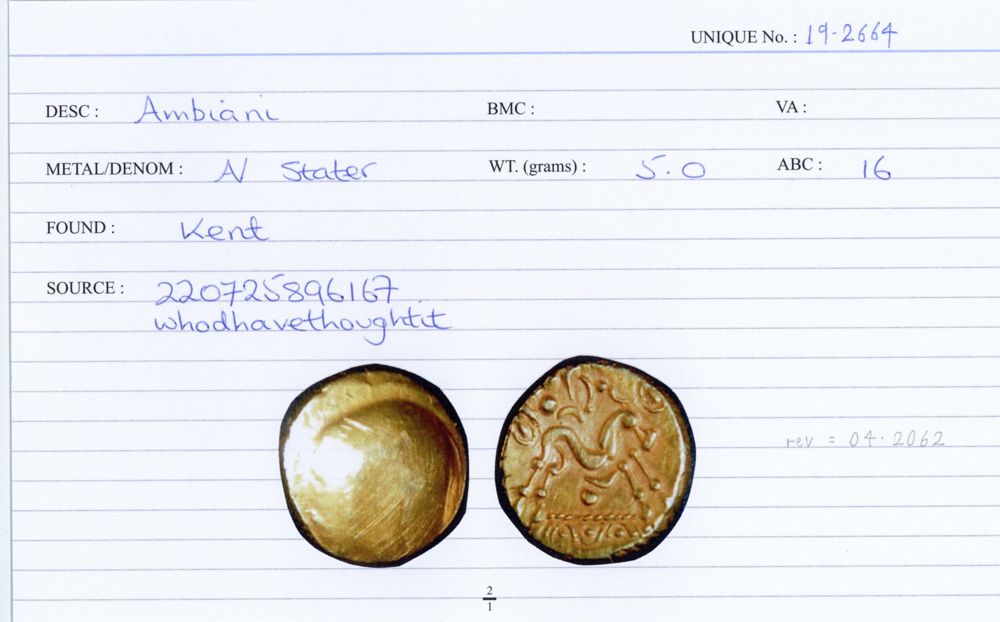 UNIQUE No. : 19-2664
DESC : Ambiani BMC : VA :
METAL/DENOM : N Stater WT. (grams) : 5.0 ABC : 16
FOUND : Kent
SOURCE : 220725896167
whodhavethoughtit
rev = 04.2062
2
1